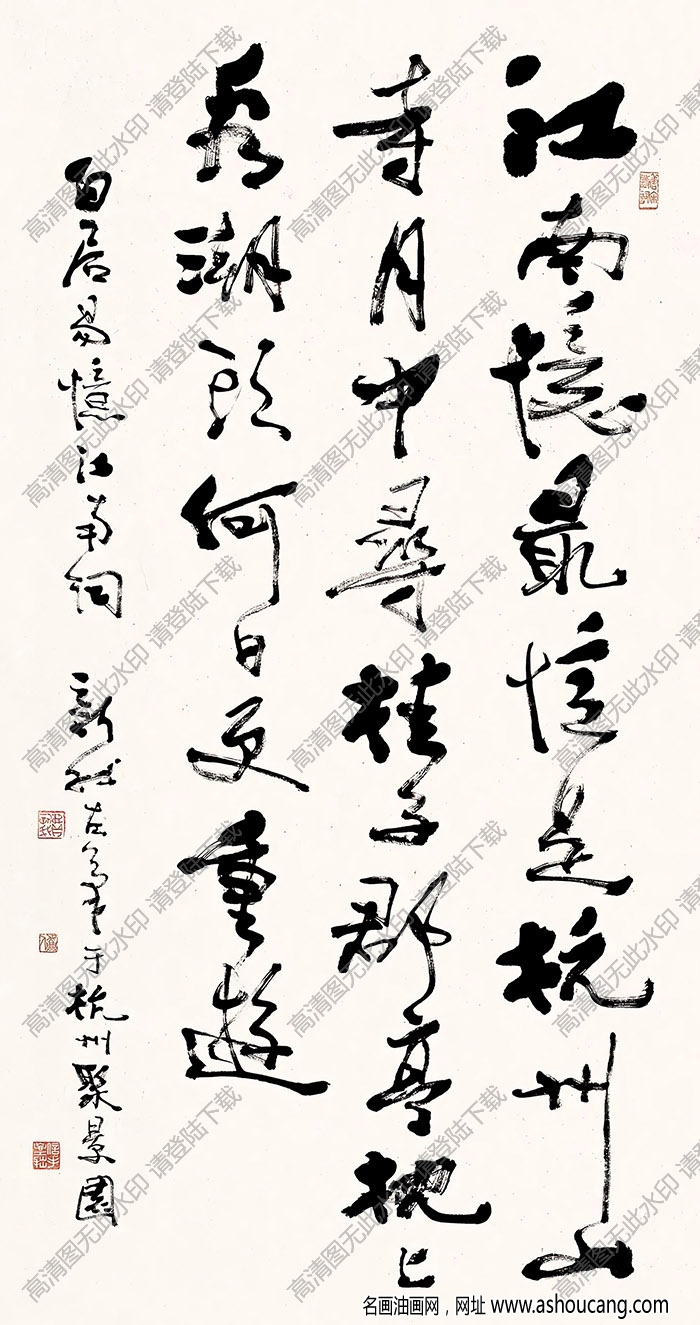 江南憶最憶是杭州山
寺月中尋桂子郡亭枕上
看潮頭何日更重遊
白居易憶江南詞 新
于杭州聚景園
高清图无此水印 请登陆下载
名画油画网，网址 www.ashoucang.com